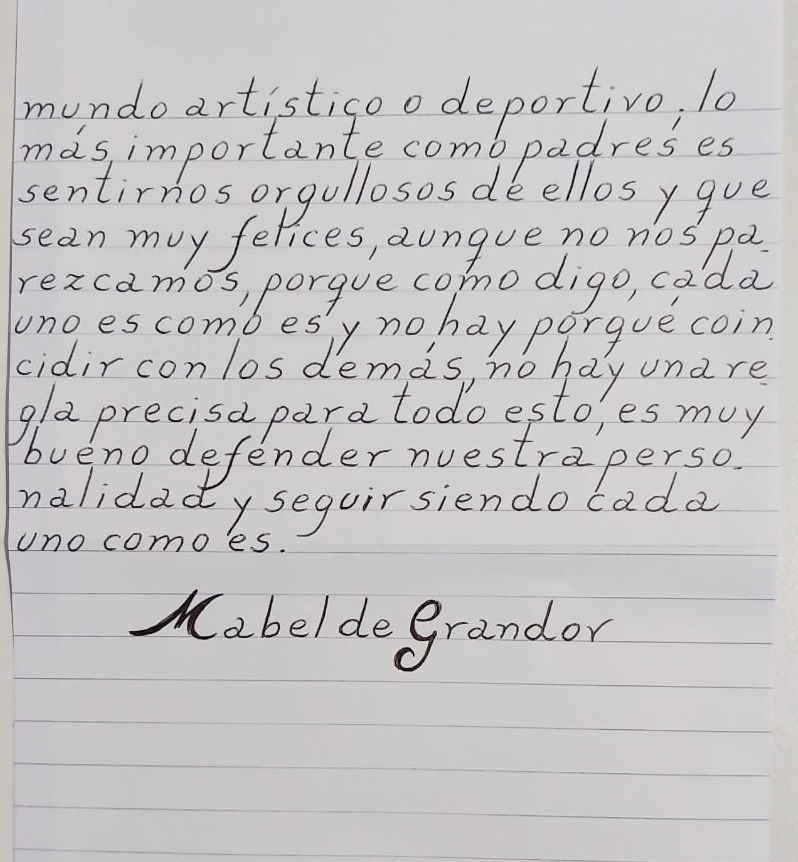 mundo artístico o deportivo, lo
más importante como padres es
sentirnos orgullosos de ellos y que
sean muy felices, aunque no nos pa-
rezcamos, porque como digo, cada
uno es como es y no hay porqué coin
cidir con los demás, no hay una re
gla precisa para todo esto, es muy
bueno defender nuestra perso-
nalidad y seguir siendo cada
uno como es.
Mabel de Grandor